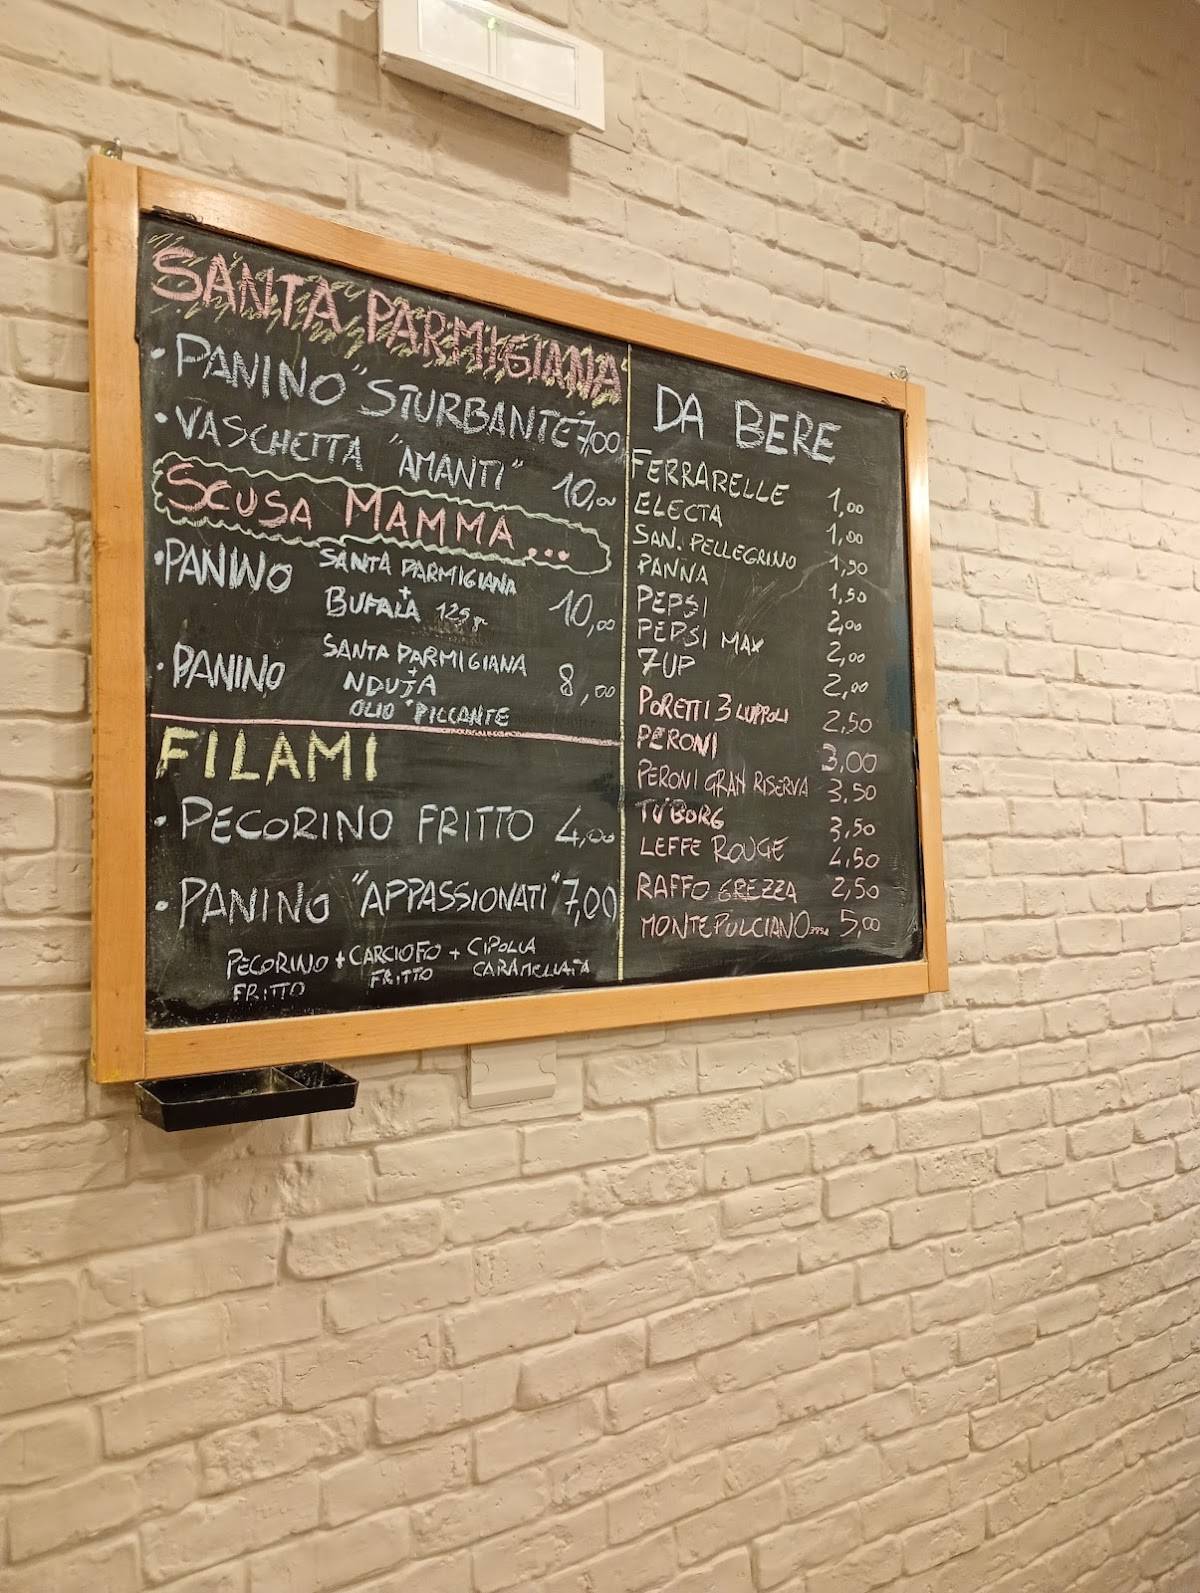 SANTA PARMIGIANA
• PANINO "STURBANTE" 7,00
• VASCHETTA "AMANTI" 10,00
SCUSA MAMMA...
• PANINO SANTA PARMIGIANA + BUFALA 125 gr 10,00
• PANINO SANTA PARMIGIANA + NDUJA OLIO PICCANTE 8,00
FILAMI
• PECORINO FRITTO 4,00
• PANINO "APPASSIONATI" 7,00
PECORINO + CARCIOFO + CIPOLLA
FRITTO FRITTO CARAMELLATA
DA BERE
FERRARELLE 1,00
ELECTA 1,00
SAN. PELLEGRINO 1,50
PANNA 1,50
PEPSI 2,00
PEPSI MAX 2,00
7UP 2,00
PORETTI 3 LUPPOLI 2,50
PERONI 3,00
PERONI GRAN RISERVA 3,50
TUBORG 3,50
LEFFE ROUGE 4,50
RAFFO GREZZA 2,50
MONTEPULCIANO 5,00